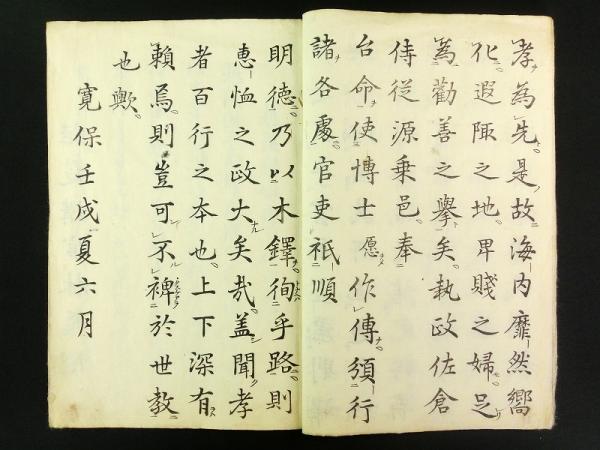 孝為先是故海内靡然嚮
化遐陬之地卑賤之婦足
為勸善之擧矣執政佐倉
侍從源乗邑奉
台命使博士愿作傳頒行
諸各處官吏祇順
明德乃以木鐸徇乎路則
恵恤之政大矣哉蓋聞孝
者百行之本也上下深有
賴焉則豈可不裨於世教
也歟
寛保壬戌夏六月